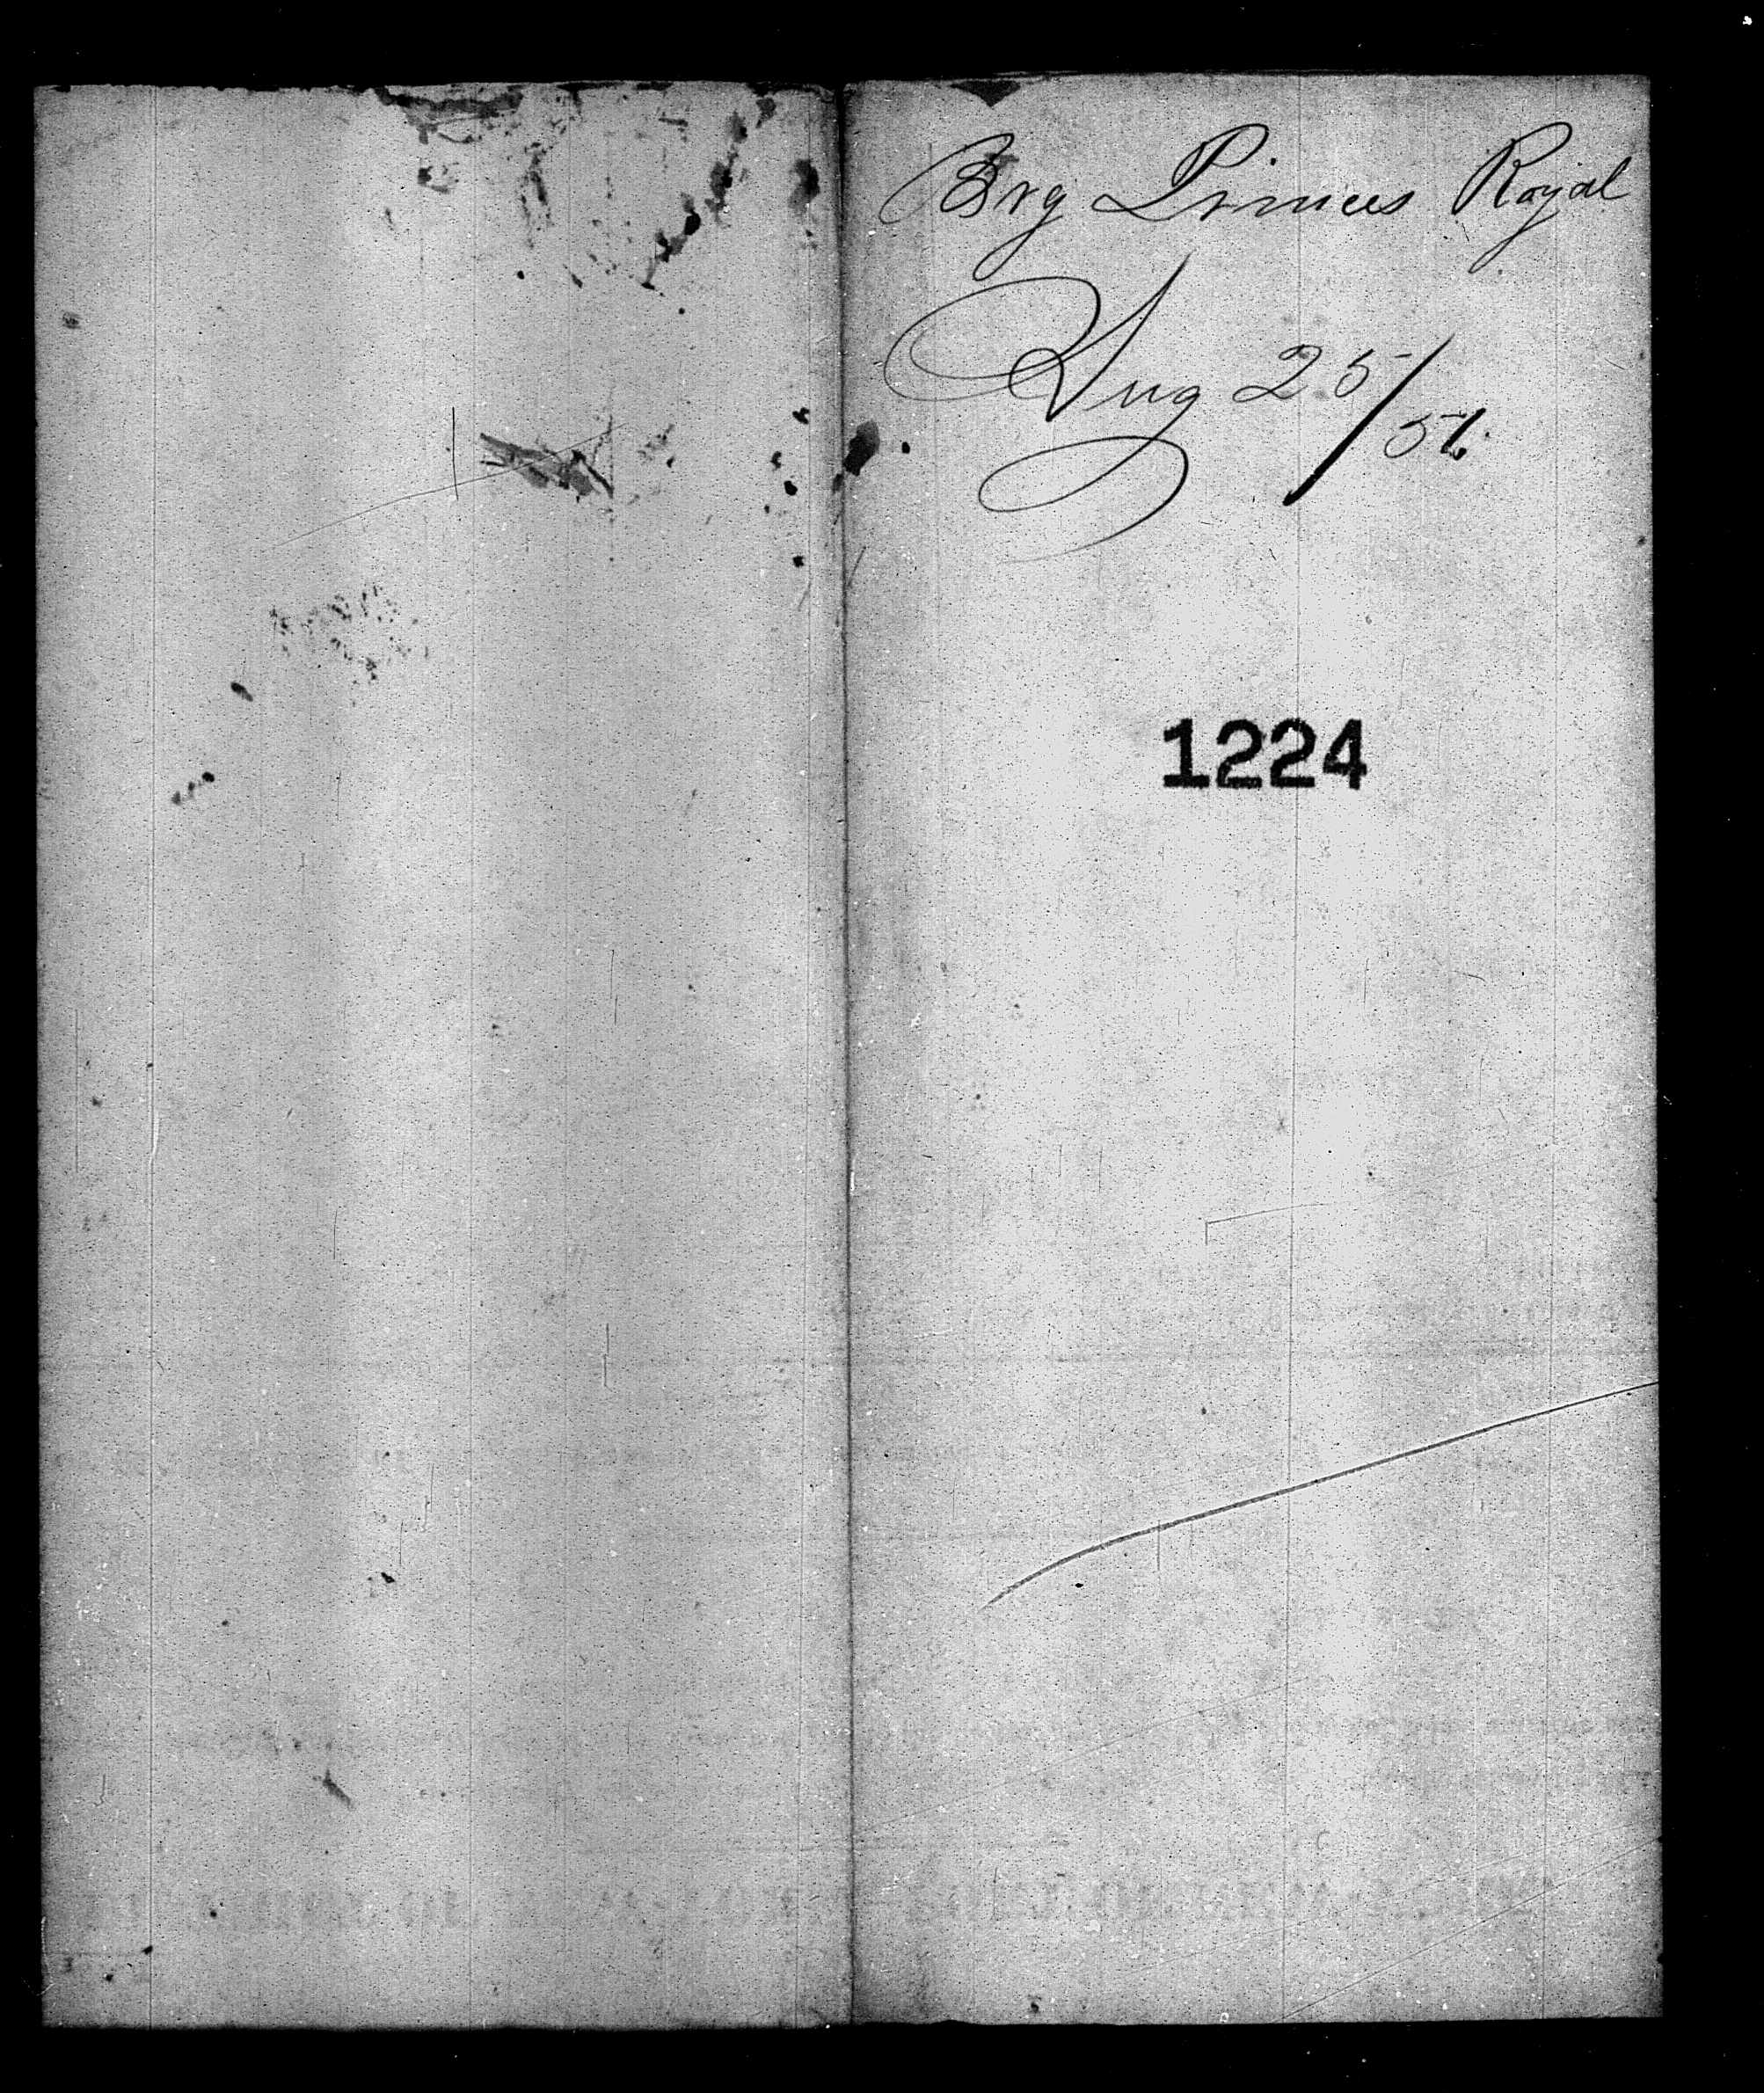 Brg Princes Royal
Aug 25/
56
1224